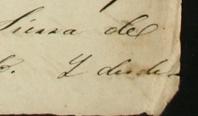 Sierra de
Y desde